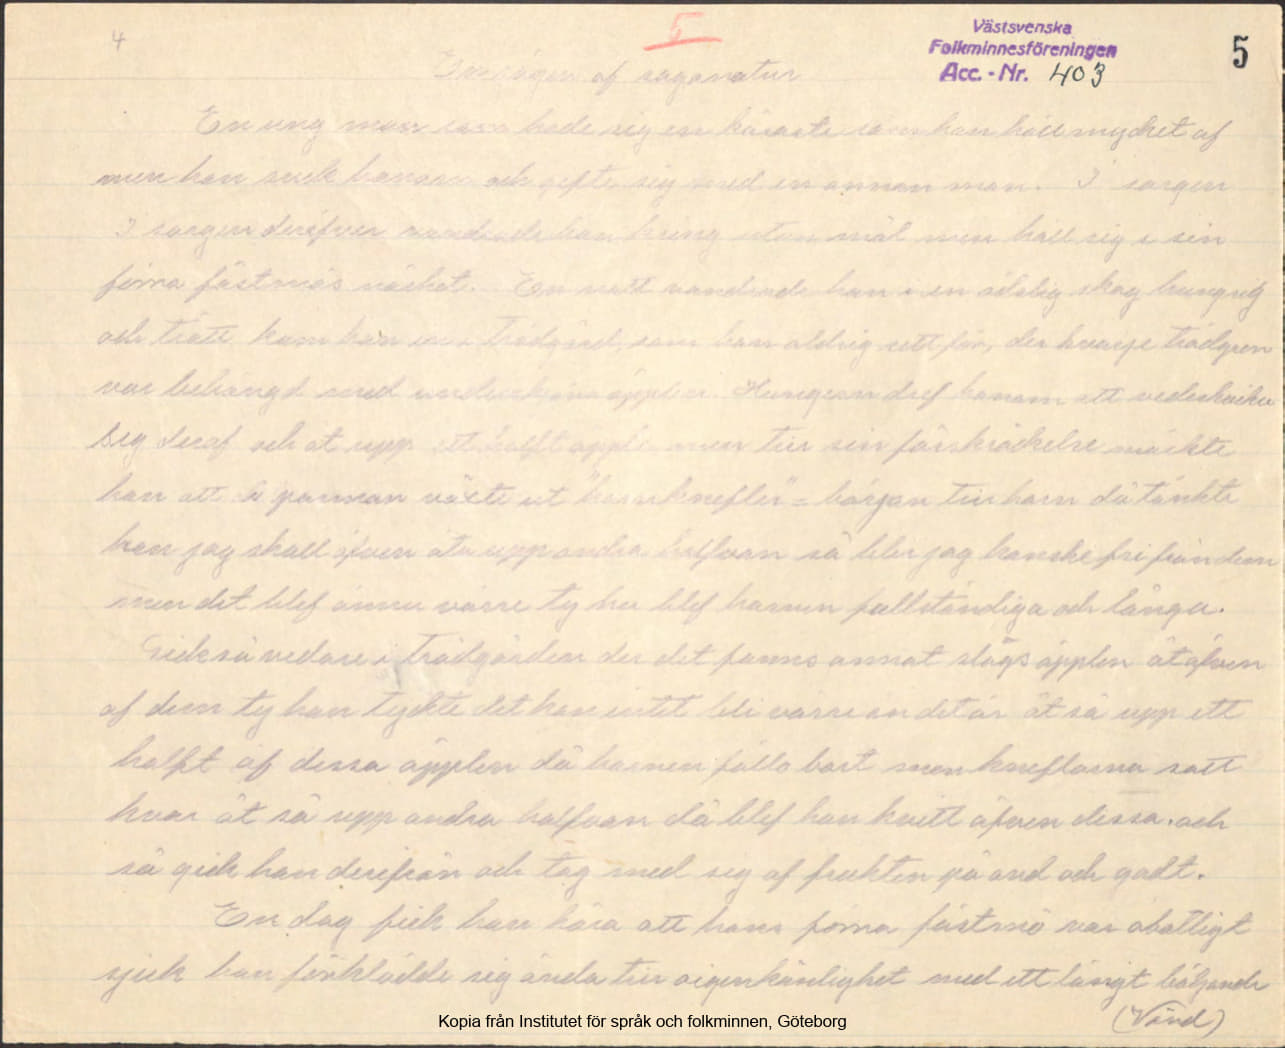 4
5
Västsvenska
Folkminnesföreningen
Acc. - Nr. 403
5
En sägen af saganatur
En ung man som hade sig en käraste som han höll mycket af
men hon svek honom och gifte sig med en annan man. I sorgen
I sorgen deröfver vandrade han kring utan mål men höll sig i sin
förra fästmös närhet. En natt vandrade han i en ödslig skog hungrig
och trött kom han till trädgård, som han aldrig sett förr, der hvarje trädgren
var behängd med undersköna äpplen. Hungern dref honom att vederkvicka
sig deraf och åt upp ett halft äpple men till sin förskräckelse märkte
han att i pannan växte ut "hornknefler" = början till horn då tänkte
han jag skall äfven äta upp andra halfvan så blir jag kanske fri från dem
men det blef ännu värre ty nu blef hornen fullständiga och långa.
Gick så vidare i trädgården der det fanns annat slags äpplen åt äfven
af dem ty han tyckte det kan intet bli värre än det är åt så upp ett
halft af dessa äpplen då hornen föllo bort men kneflarna satt
kvar åt så upp andra halfvan då blef han kvitt äfven dessa. och
så gick han derifrån och tog med sig af frukten på ond och godt.
En dag fick han höra att hans förra fästmö var obotligt
sjuk han förklädde sig ända till oigenkänlighet med ett långt böljande
(Vänd)
Kopia från Institutet för språk och folkminnen, Göteborg